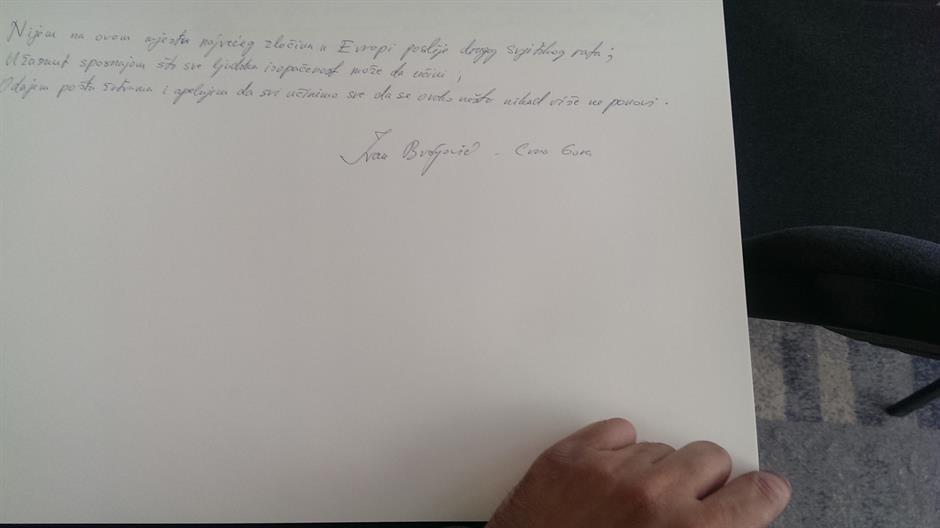 Nijem na ovom mjestu najvećeg zločina u Evropi poslije drugog svjetskog rata;
Užasnut spoznajem što sve ljudska izopačenost može da učini;
Odajem poštu žrtvama i apelujem da svi učinimo sve da se ovako nešto nikad više ne ponovi.
Ivan Brajović - Crna Gora